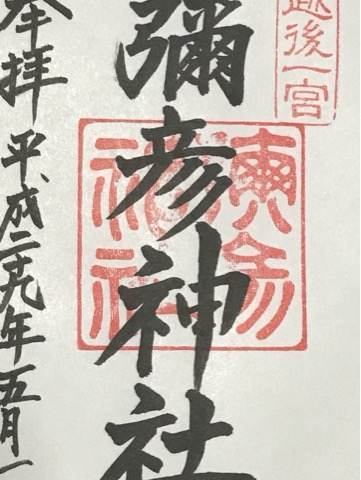 越後一宮
彌彦神社
奉拝
平成二十九年五月一